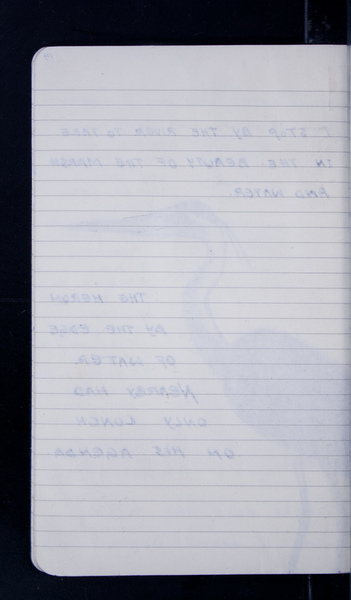 I STOP BY THE RIVER TO TAKE
IN THE BEAUTY OF THE MARSH
AND WATER.
THE HERON
BY THE EDGE
OF WATER
NEARBY HAD
ONLY LUNCH
ON HIS AGENDA